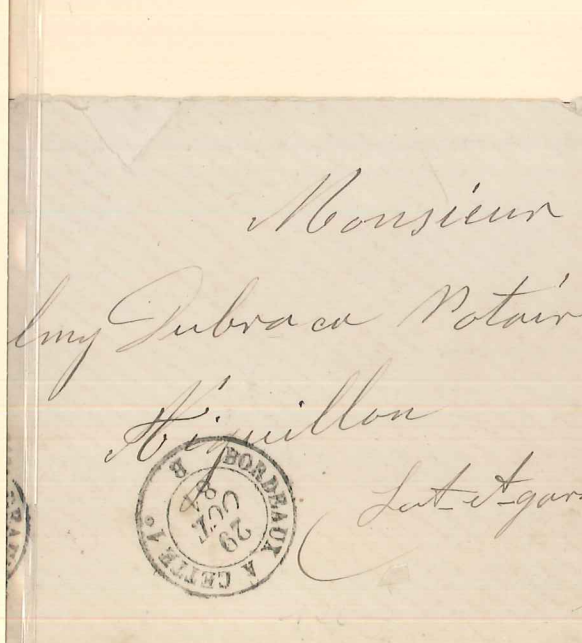 Monsieur
Dubraca Notair
Aiguillon
Lot-et-gar
BORDEAUX A CETTE 1°
29
OCT